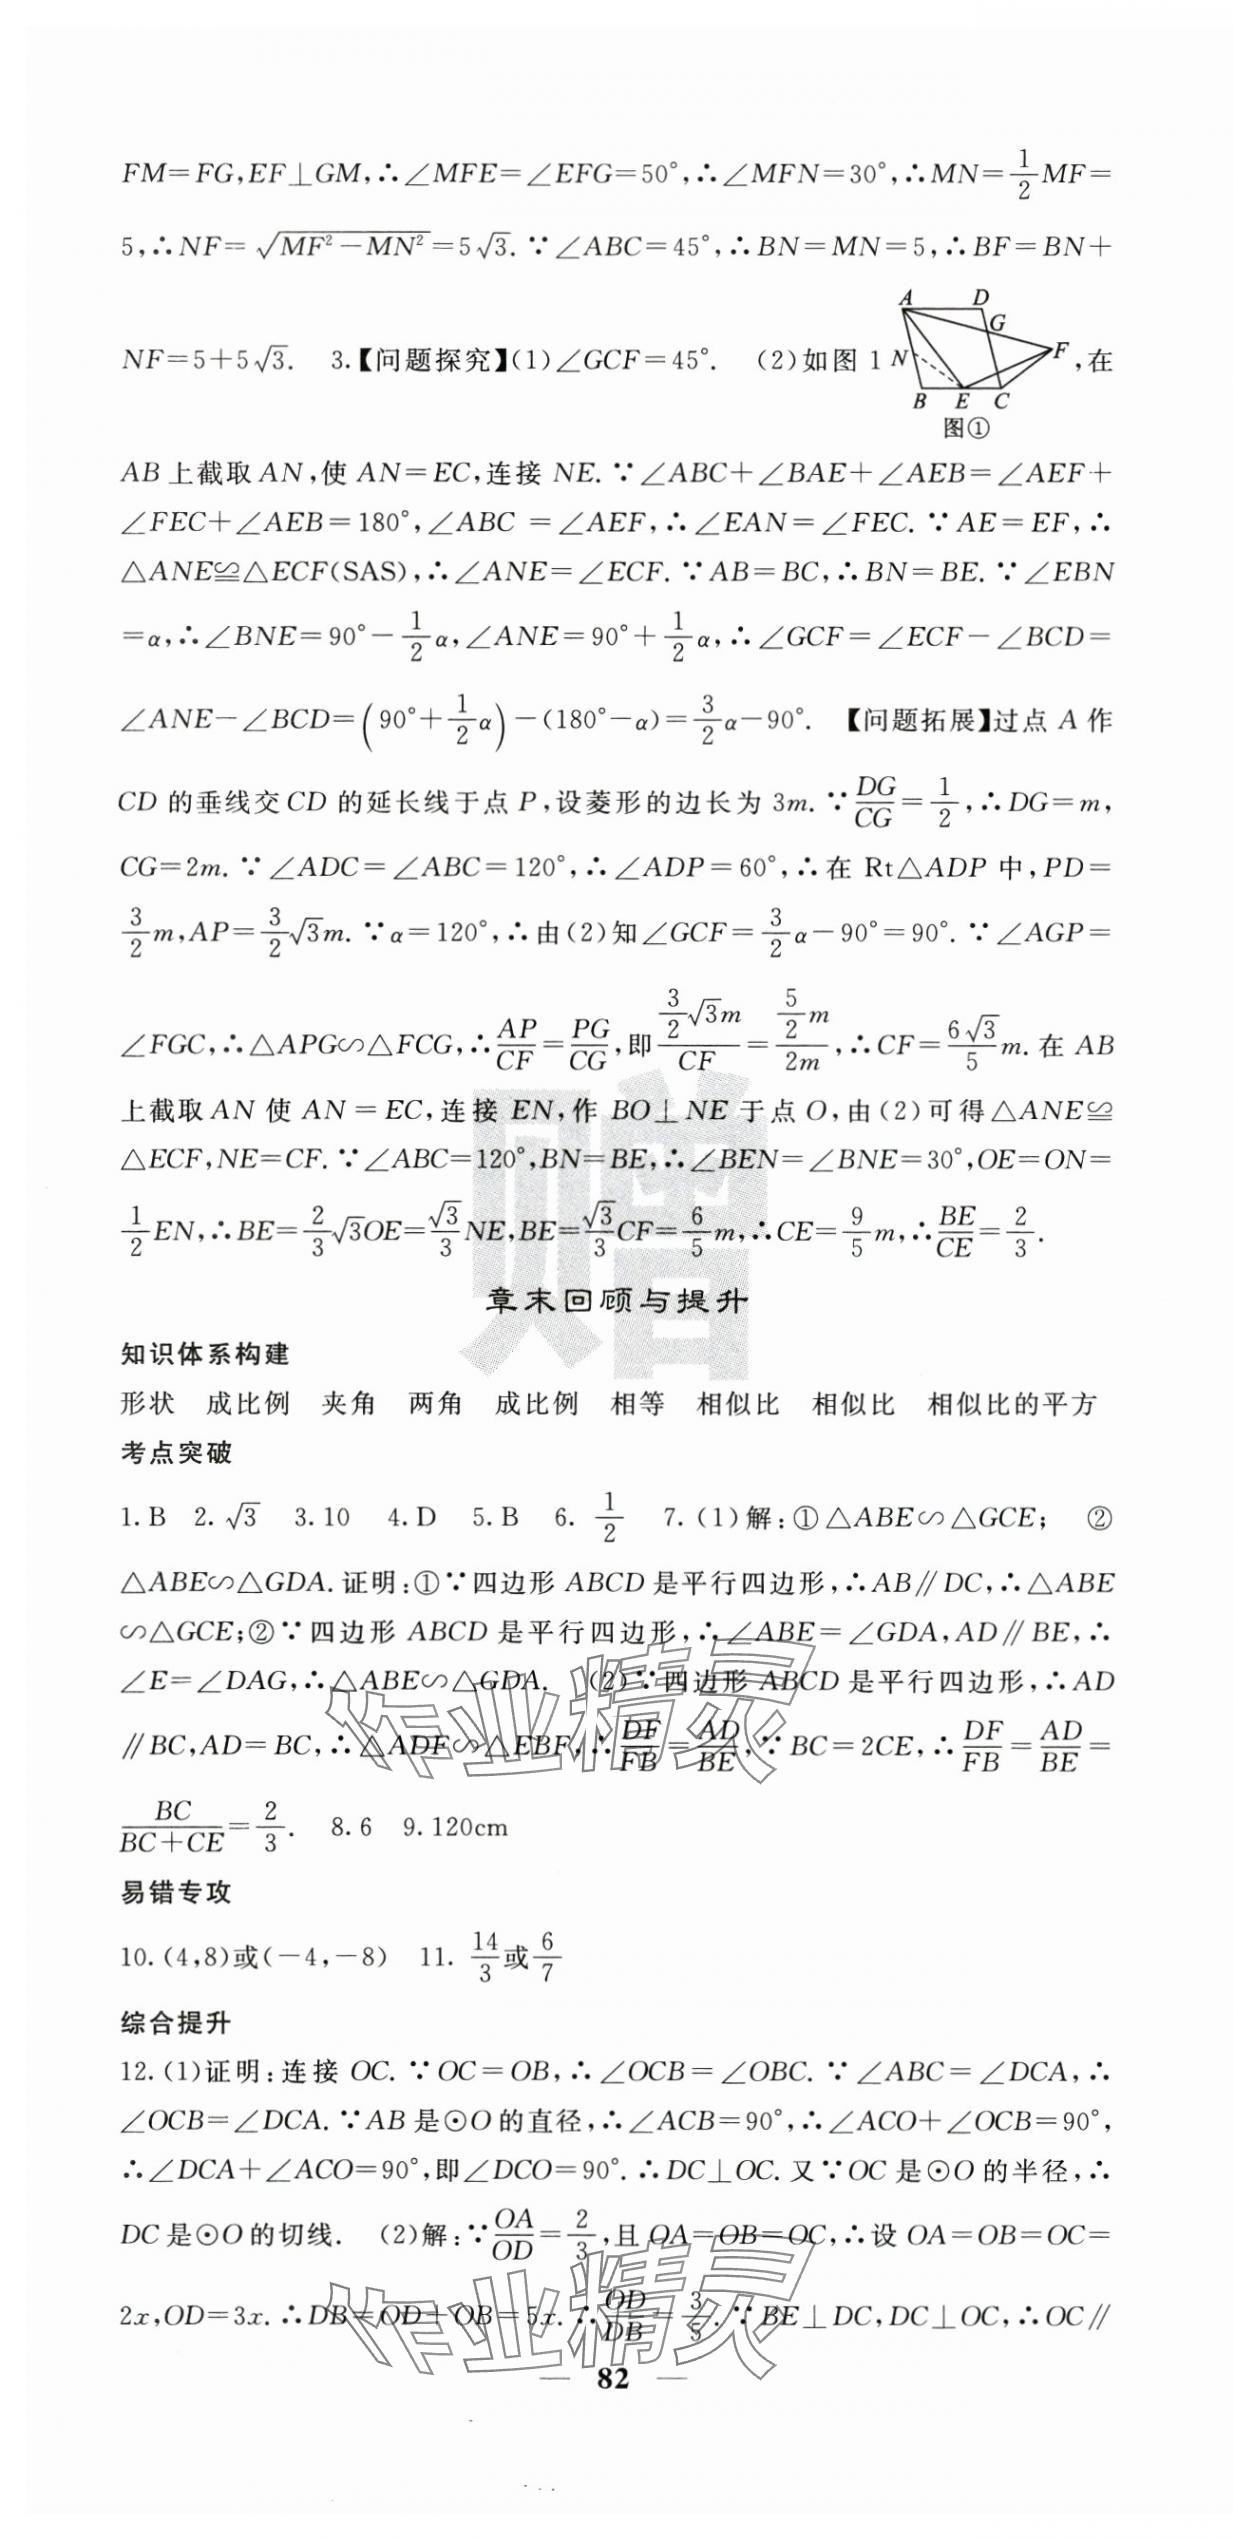 FM=FG,EF⊥GM,∴∠MFE=∠EFG=50°,∴∠MFN=30°,∴MN=1/2MF=
5,∴NF=√(MF²-MN²)=5√3. ∵∠ABC=45°,∴BN=MN=5,∴BF=BN+
NF=5+5√3. 3.【问题探究】(1)∠GCF=45°. (2)如图1 A D G N F B E C 图① ,在
AB上截取AN,使AN=EC,连接NE. ∵∠ABC+∠BAE+∠AEB=∠AEF+
∠FEC+∠AEB=180°,∠ABC=∠AEF,∴∠EAN=∠FEC. ∵AE=EF,∴
△ANE≌△ECF(SAS),∴∠ANE=∠ECF. ∵AB=BC,∴BN=BE. ∵∠EBN
=α,∴∠BNE=90°-1/2α,∠ANE=90°+1/2α,∴∠GCF=∠ECF-∠BCD=
∠ANE-∠BCD=(90°+1/2α)-(180°-α)=3/2α-90°. 【问题拓展】过点A作
CD的垂线交CD的延长线于点P,设菱形的边长为3m. ∵DG/CG=1/2,∴DG=m,
CG=2m. ∵∠ADC=∠ABC=120°,∴∠ADP=60°,∴在Rt△ADP中,PD=
3/2m,AP=3/2√3m. ∵α=120°,∴由(2)知∠GCF=3/2α-90°=90°. ∵∠AGP=
∠FGC,∴△APG∽△FCG,∴AP/CF=PG/CG,即(3/2√3m)/CF=(5/2m)/2m,∴CF=6√3/5m.在AB
上截取AN使AN=EC,连接EN,作BO⊥NE于点O,由(2)可得△ANE≌
△ECF,NE=CF. ∵∠ABC=120°,BN=BE,∴∠BEN=∠BNE=30°,OE=ON=
1/2EN,∴BE=2/3√3OE=√3/3NE,BE=√3/3CF=6/5m,∴CE=9/5m,∴BE/CE=2/3.
赠
章末回顾与提升
知识体系构建
形状 成比例 夹角 两角 成比例 相等 相似比 相似比 相似比的平方
考点突破
1.B 2.√3 3.10 4.D 5.B 6.1/2 7.(1)解:①△ABE∽△GCE; ②
△ABE∽△GDA.证明:①∵四边形ABCD是平行四边形,∴AB∥DC,∴△ABE
∽△GCE;②∵四边形ABCD是平行四边形,∴∠ABE=∠GDA,AD∥BE,∴
∠E=∠DAG,∴△ABE∽△GDA. (2)∵四边形ABCD是平行四边形,∴AD
∥BC,AD=BC,∴△ADF∽△EBF,∴DF/FB=AD/BE,∵BC=2CE,∴DF/FB=AD/BE=
作业精灵
BC/(BC+CE)=2/3. 8.6 9.120cm
易错专攻
10.(4,8)或(-4,-8) 11.14/3或6/7
综合提升
12.(1)证明:连接OC. ∵OC=OB,∴∠OCB=∠OBC. ∵∠ABC=∠DCA,∴
∠OCB=∠DCA. ∵AB是⊙O的直径,∴∠ACB=90°,∴∠ACO+∠OCB=90°,
∴∠DCA+∠ACO=90°,即∠DCO=90°.∴DC⊥OC.又∵OC是⊙O的半径,∴
DC是⊙O的切线. (2)解:∵OA/OD=2/3,且OA=OB=OC,∴设OA=OB=OC=
2x,OD=3x.∴DB=OD+OB=5x.∴OD/DB=3/5. ∵BE⊥DC,DC⊥OC,∴OC∥
作业精灵
— 82 —